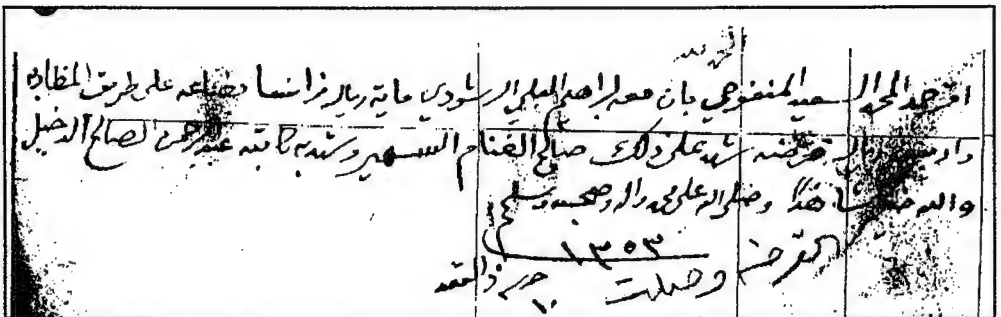 الحمد لله
اقر حمد المحمد السعيد المنفوحي بان معه لبراهيم العلي الرشودي ماية ريال فرانسا بضاعة على طريق المظاربه
ريال قرضه شهد على ذلك صالح الغنام السهير وشهد به كاتبه عبدالرحمن الصالح الدخيل
والله شاهدا وصلى الله على محمد واله وصحبه وسلم
١٣٥٣
القرضه وصلت
ذا القعده
١٠